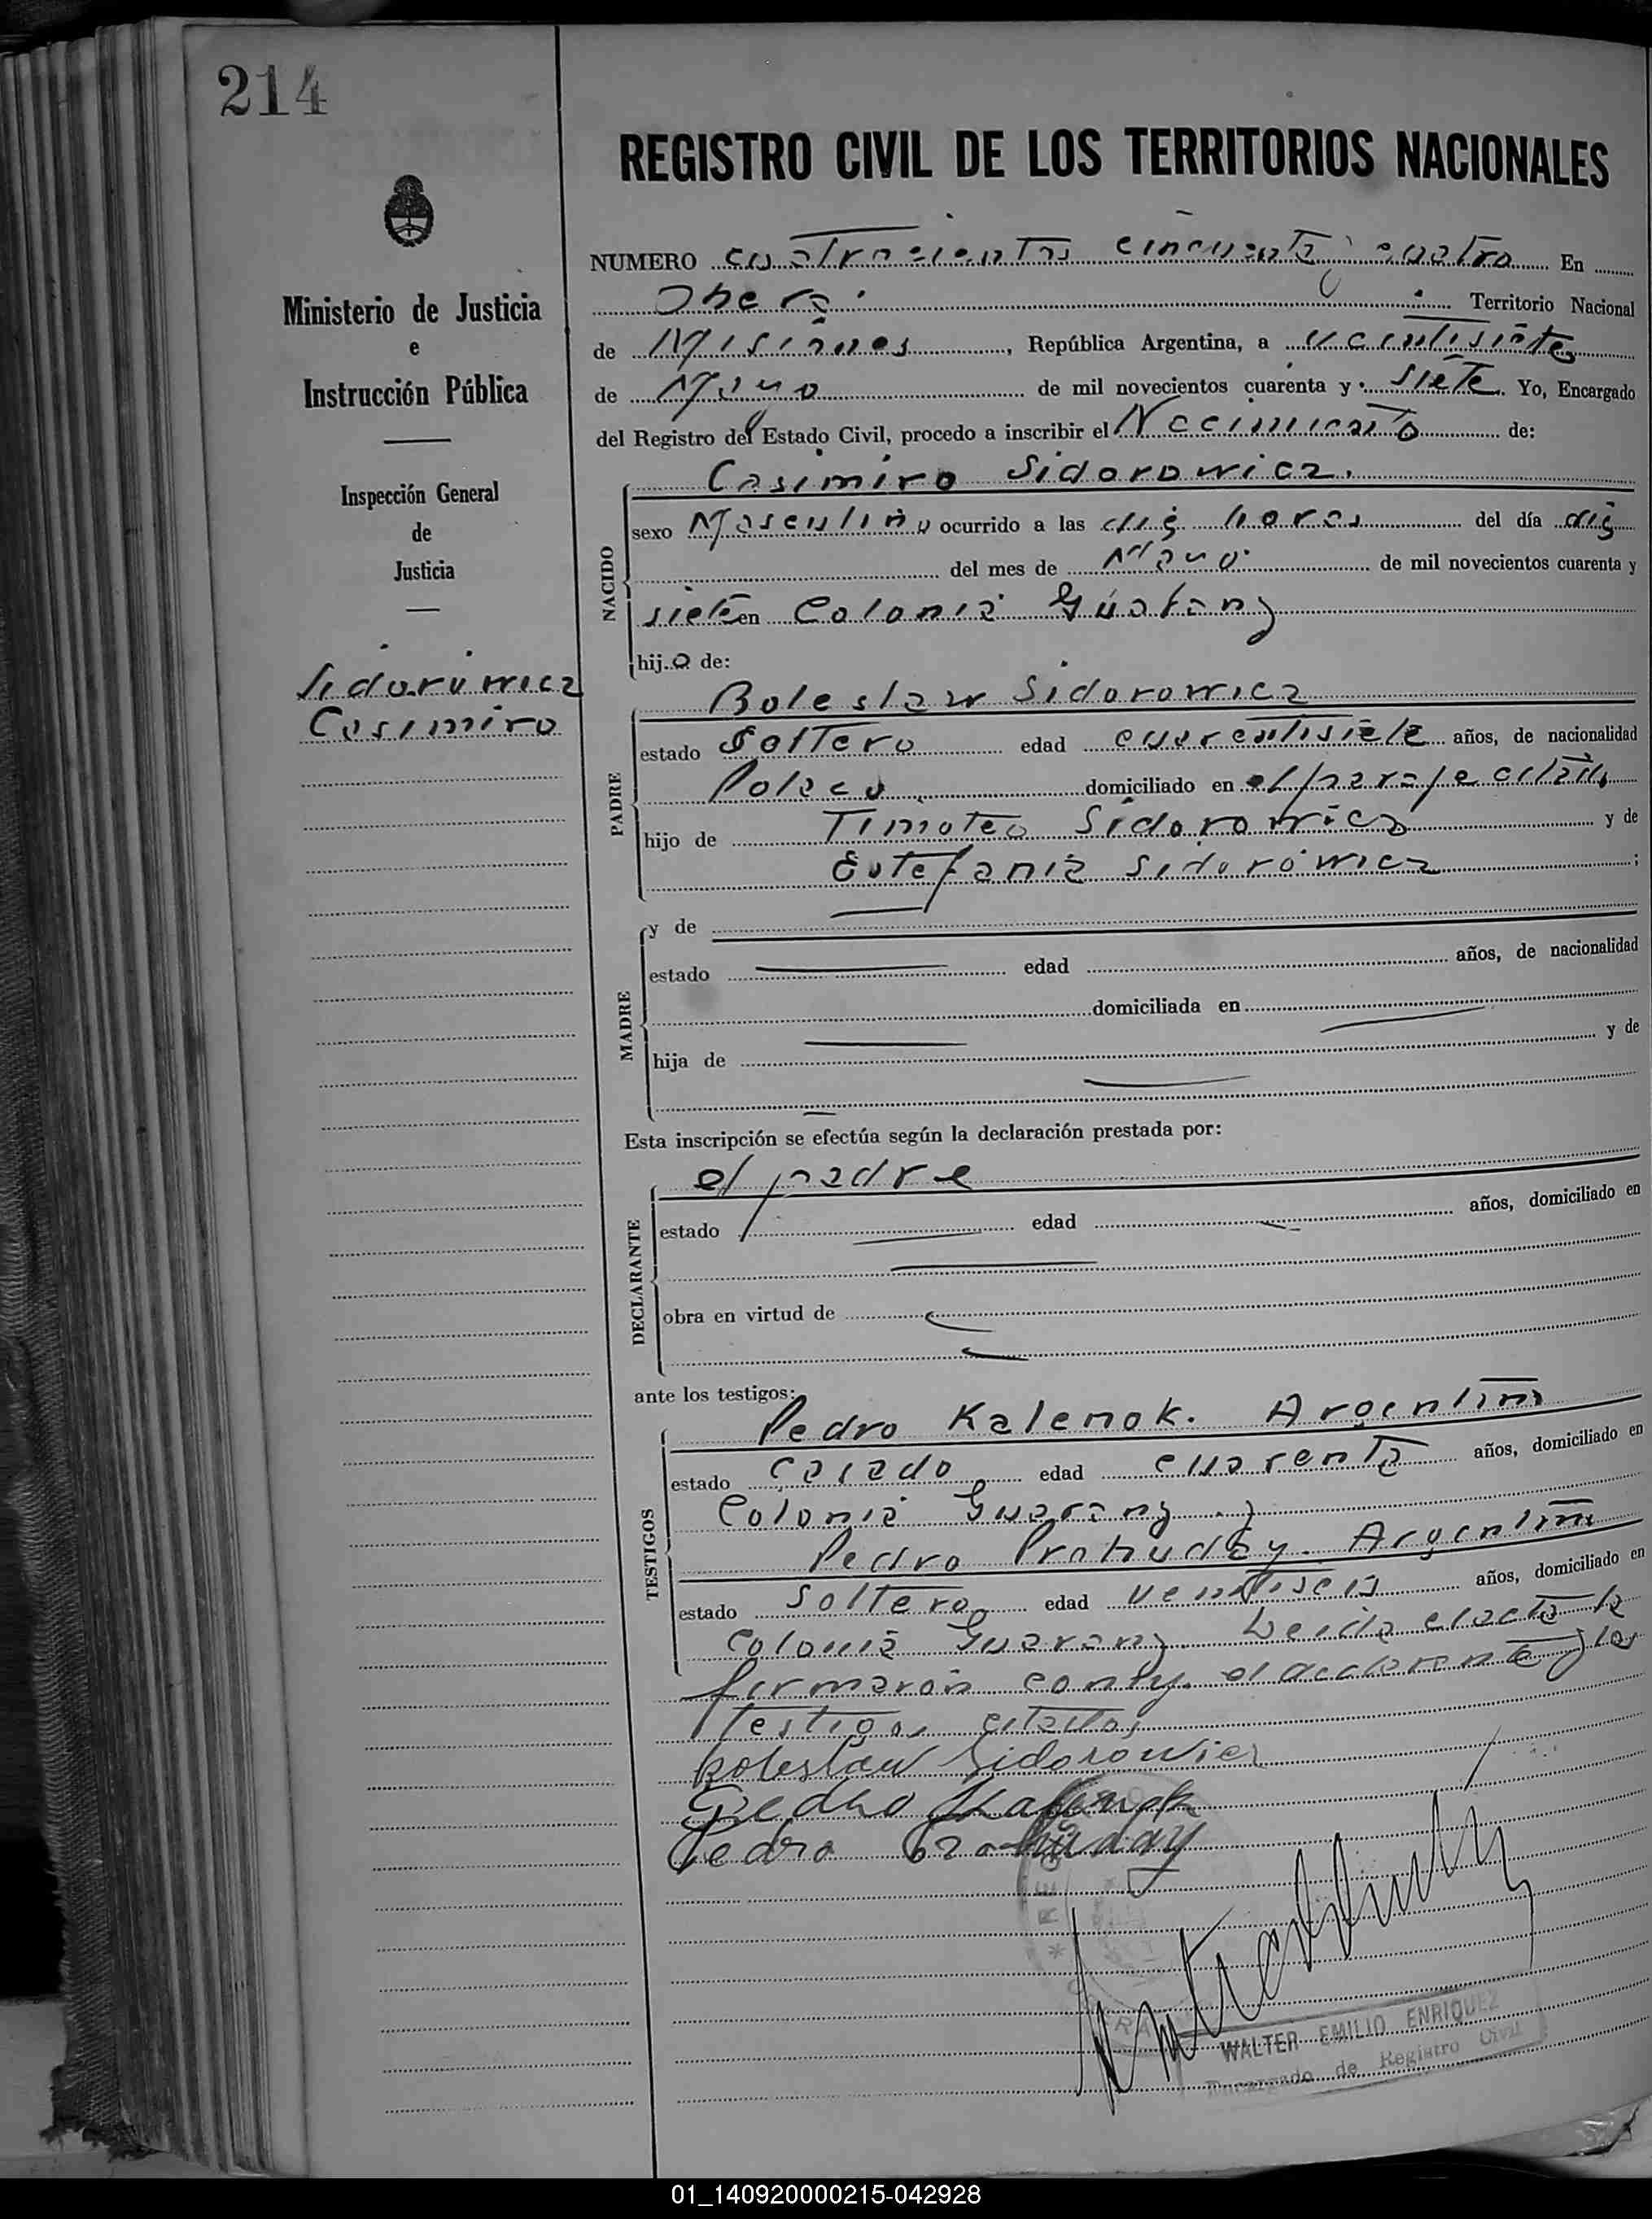 214
REGISTRO CIVIL DE LOS TERRITORIOS NACIONALES
Ministerio de Justicia
e
Instrucción Pública
Inspección General
de
Justicia
Sidorowicz
Casimiro
NUMERO cuatrocientos cincuenta y cuatro En
Oberá Territorio Nacional
de Misiones, República Argentina, a veintisiete
de Mayo de mil novecientos cuarenta y siete. Yo, Encargado
del Registro del Estado Civil, procedo a inscribir el Nacimiento de:
NACIDO
Casimiro Sidorowicz.
sexo Masculino ocurrido a las diez horas del día diez
del mes de Mayo de mil novecientos cuarenta y
siete en Colonia Guarany
hijo de:
PADRE
Boleslaw Sidorowicz
estado Soltero edad cuarentisiete años, de nacionalidad
Polaco domiciliado en el paraje citado
hijo de Timoteo Sidorowicz y de
Estefania Sidorowicz ;
MADRE
y de
estado edad años, de nacionalidad
domiciliada en
hija de y de
Esta inscripción se efectúa según la declaración prestada por:
DECLARANTE
el padre
estado edad años, domiciliado en
obra en virtud de
ante los testigos:
TESTIGOS
Pedro Kalenok. Argentino
estado casado edad cuarenta años, domiciliado en
Colonia Guarany y
Pedro Prohuday. Argentino
estado soltero edad veintiseis años, domiciliado en
Colonia Guarany. Leida el acta la
firmaron conmigo el declarante y los
testigos citados
Boleslaw Sidorowicz
Pedro Kalenok
Pedro Prohuday
WALTER EMILIO ENRIQUEZ
Encargado de Registro Civil
01_140920000215-042928